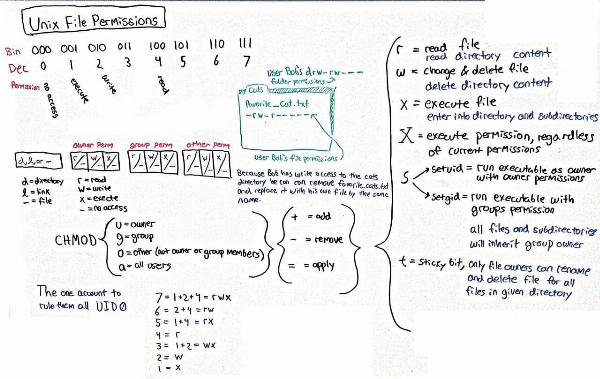 Unix File Permissions
Bin 000 001 010 011 100 101 110 111
Dec 0 1 2 3 4 5 6 7
Permission no access execute write read
User Bob's drw-rw----
folder permissions
Cats
favorite_Cat.txt
-rw-r-----
User Bob's file permissions
Because Bob has write access to the cats
directory he can remove favorite_cats.txt
and replace it with his own file by the same
name.
owner perm group perm other perm
d, l, or - r w x r w x r w x
d = directory
l = link
- = file
r = read
w = write
x = execte
- = no access
CHMOD
u = owner
g = group
o = other (not owner or group members)
a = all users
+ = add
- = remove
= = apply
The one account to
rule them all UID0
7 = 1+2+4 = rwx
6 = 2+4 = rw
5 = 1+4 = rx
4 = r
3 = 1+2 = wx
2 = w
1 = x
r = read file
read directory content
w = change & delete file
delete directory content
x = execute file
enter into directory and subdirectories
X = execute permission, regardless
of current permissions
s
setuid = run executable as owner
with owner permissions
setgid = run executable with
groups permission
all files and subdirectories
will inherit group owner
t = sticky bit, only file owners can rename
and delete file for all
files in given directory